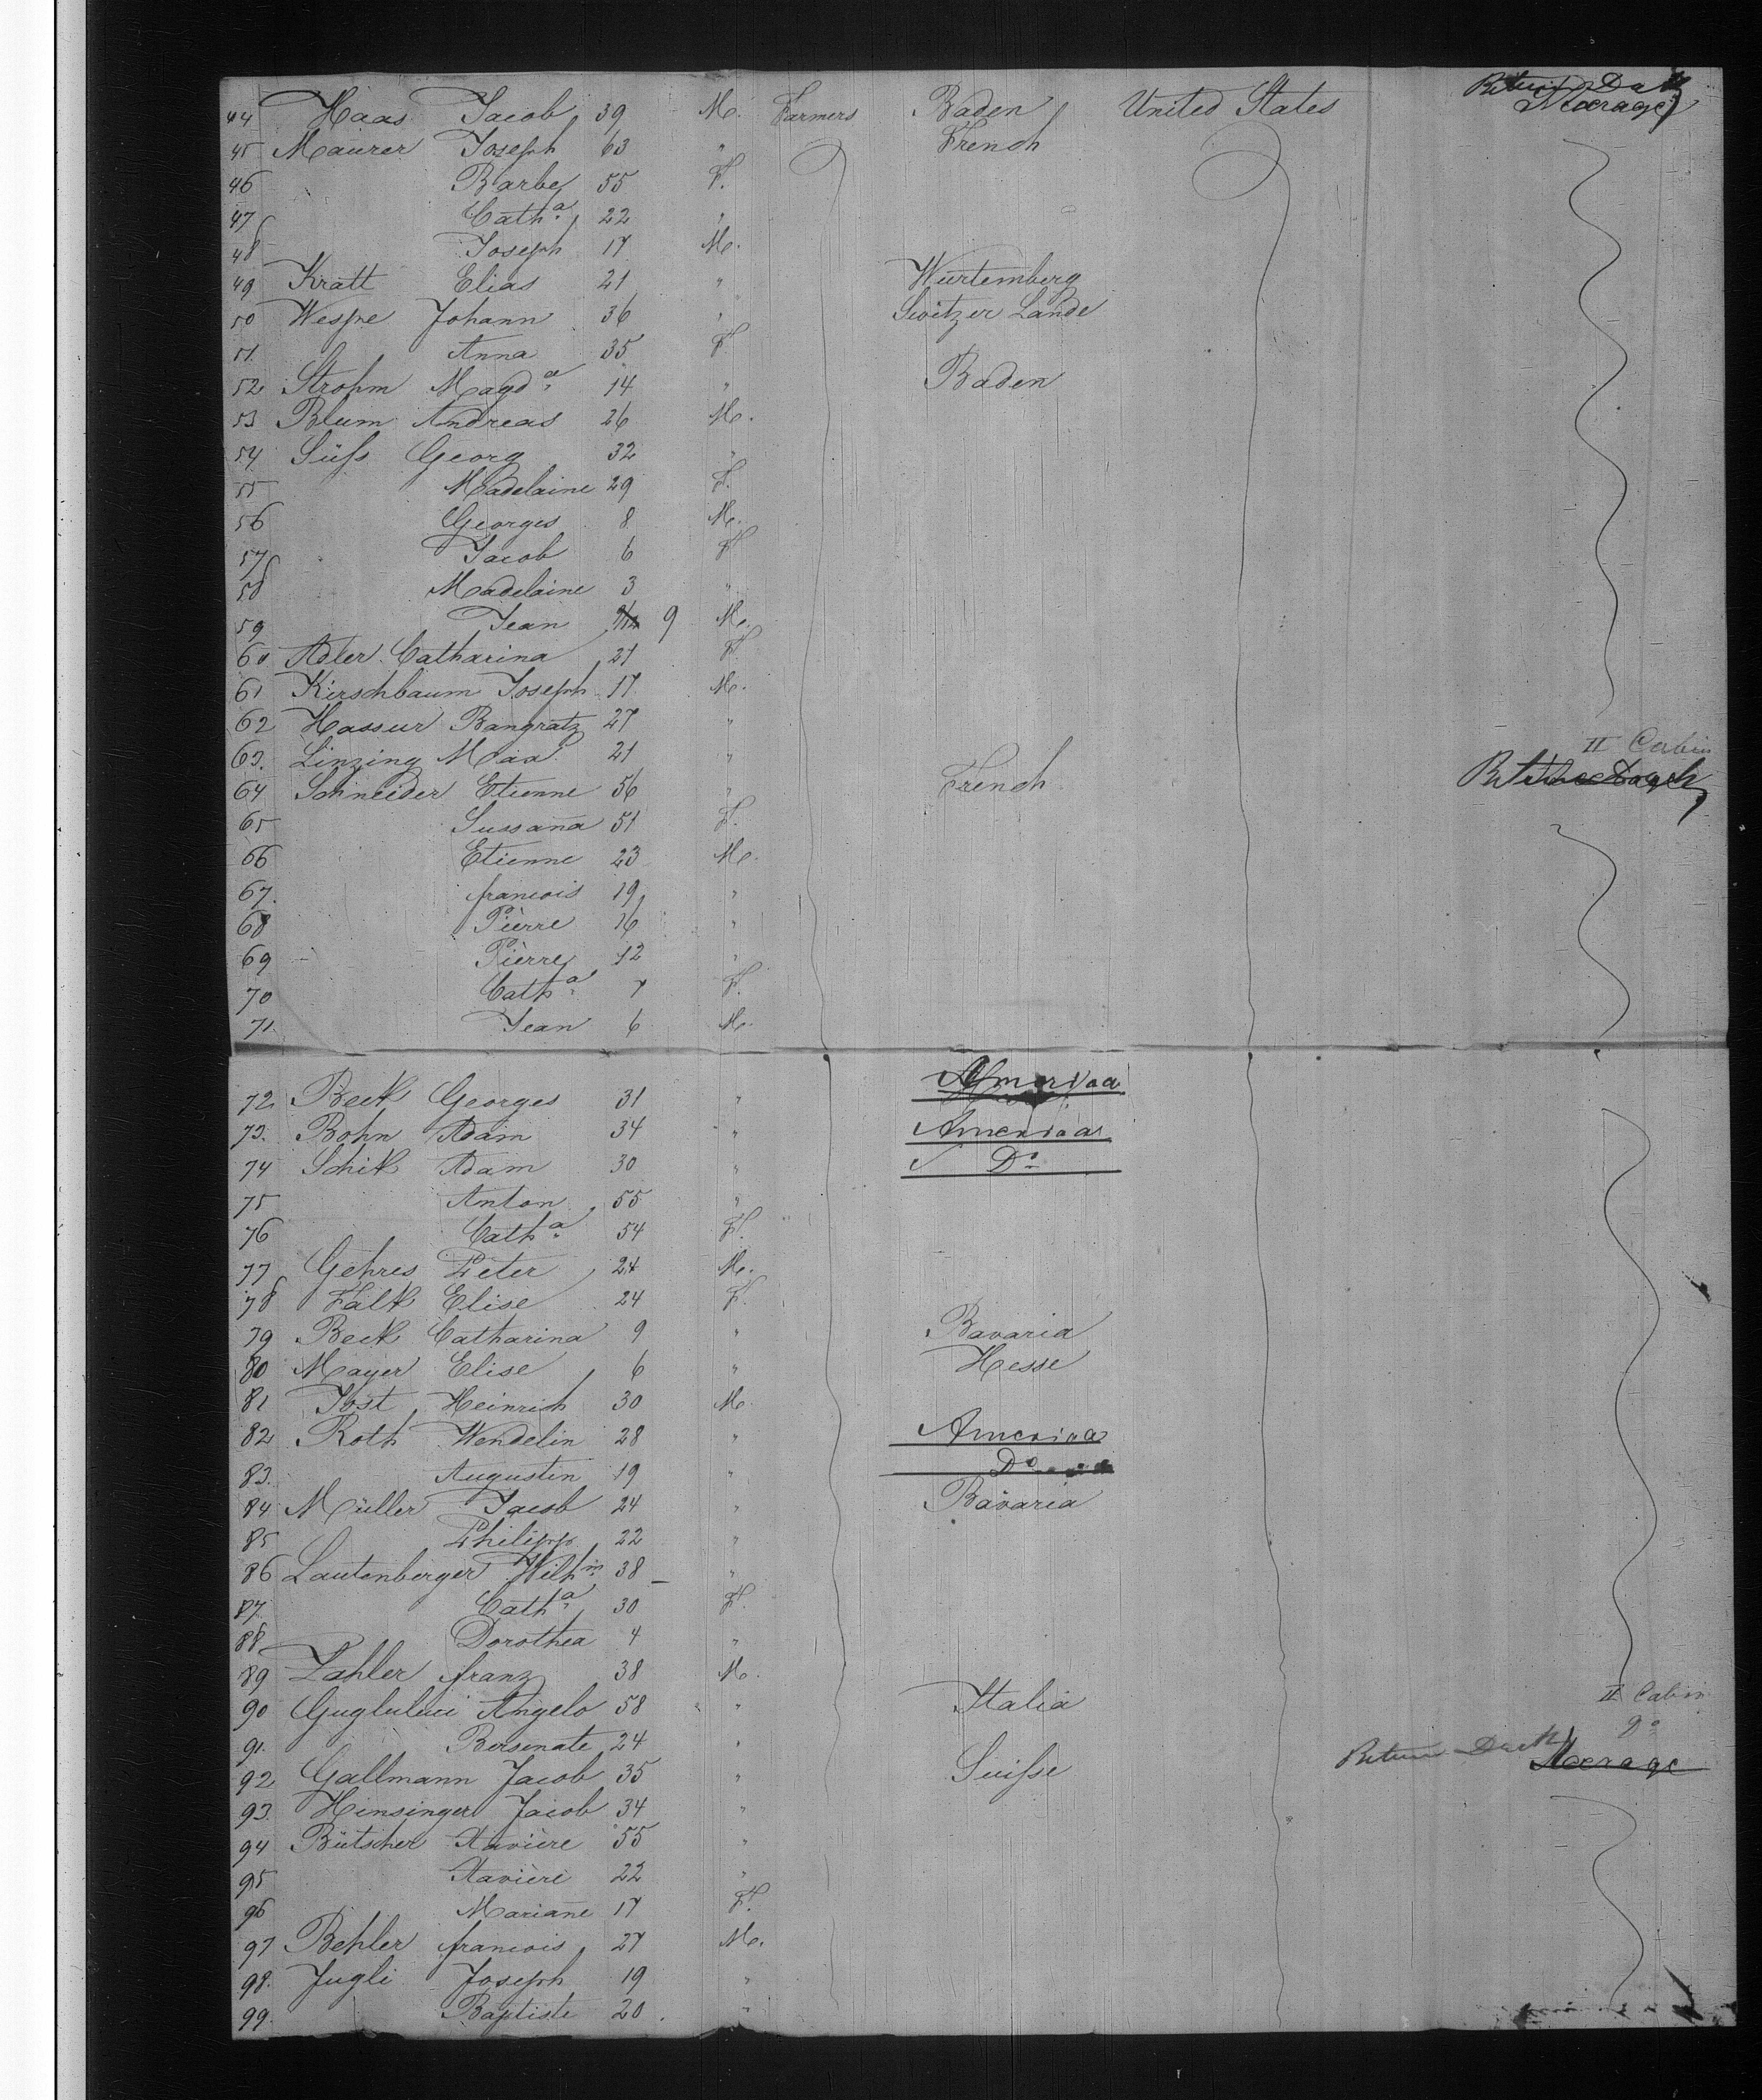 44 Haas Jacob 39 M. Farmers Baden United States Steerage
45 Maurer Joseph 63 " French
46 Barbe 55 F.
47 Cath.a 22 "
48 Joseph 17 M.
49 Kratt Elias 21 " Würtemberg
50 Wespre Johann 36 " Switzer Lande
51. Anna 35 F.
52 Strohm Magd.a 14 " Baden
53 Blum Andreas 26 M.
54 Süss Georg 32 "
55 Madelaine 29 F.
56 Georges 8 M.
57 Jacob 6 F
58 Madelaine 3 "
59 Jean 9 M.
60 Adler Catharina 21 F.
61 Kirschbaum Joseph 17 M.
62 Hassur Bangratz 27 "
63. Linzing 21 " II Cabin
64 Schneider Etienne 56 " French
65 Sussana 51 F.
66 Etienne 23 M.
67. francois 19 "
68 Pièrre 16 "
69 Pièrre 12 "
70 Cath.a 7 F.
71. Jean 6 M.
72 Beck Georges 31 " America
73. Bohn Adam 34 " America
74 Schik Adam 30 " Do
75 Anton 55 "
76 Cath.a 54 F.
77 Gehres Peter 24 M.
78 Falk Elise 24 F.
79 Beck Catharina 9 " Bavaria
80 Mayer Elise 6 " Hesse
81 Jost Heinrich 30 M.
82 Roth Wendelin 28 " America
83. Augustin 19 " Do
84 Müller Jacob 24 " Bavaria
85 Philipp 22 "
86 Lautenberger Wilh.m 38 "
87. Cath.a 30 F.
88 Dorothea 4 "
89 Zahler franz 38 M.
90 Angelo 58 " Italia II Cabin
91. 24 " Do
92 Gallmann Jacob 35 " Suisse Return Deck Steerage
93. Hinsinger Jacob 34 "
94 Bütscher Xavière 55 "
95 Xavière 22 "
96 Mariane 17 F.
97 Behler francois 27 M.
98. Jugli Joseph 19 "
99. Baptiste 20 "